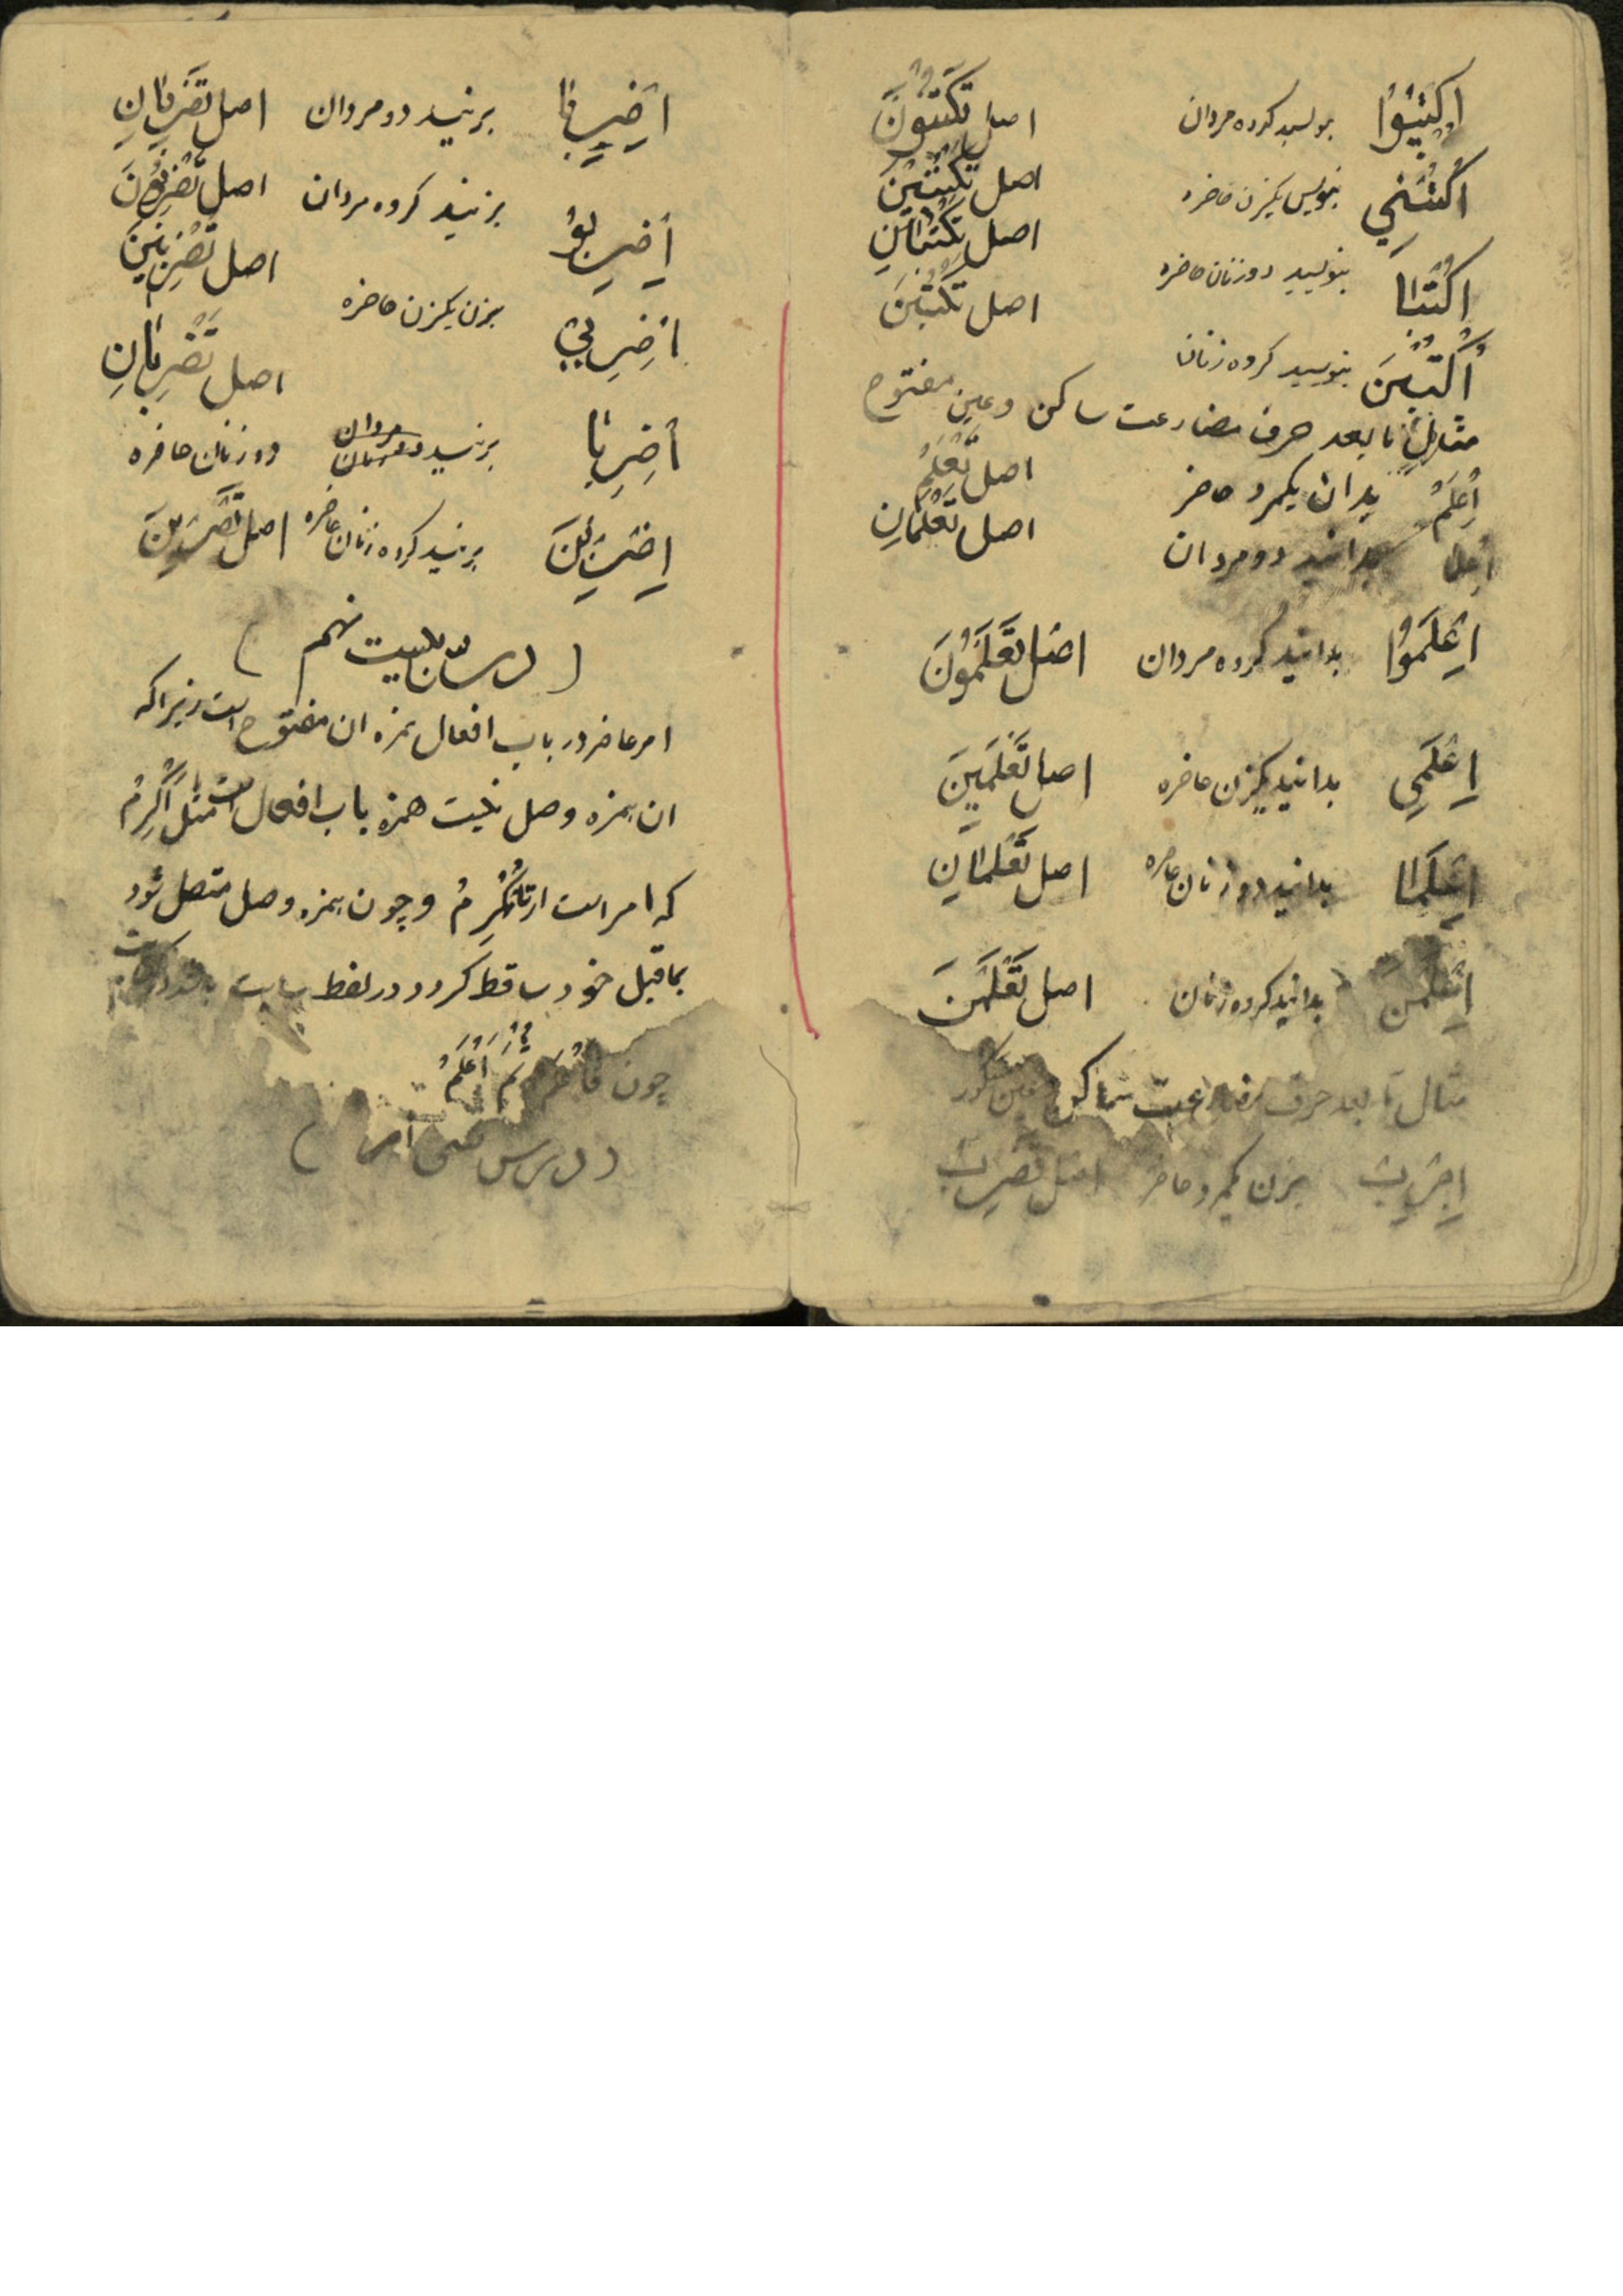 اُكْتُبُوْا بنویسید گروه مردان اصل تَكْتُبُوْنَ
اُكْتُبِيْ بنویس یکزن حاضره اصل تَكْتُبِيْنَ
اُكْتُبَا بنویسید دو زنان حاضره اصل تَكْتُبَانِ
اُكْتُبْنَ بنویسید گروه زنان اصل تَكْتُبْنَ
مثال ما بعد حرف مضارعت ساکن وعین مفتوح
اِعْلَمْ بدان یکمرد حاضر اصل تَعْلَمُ
اِعْلَمَا بدانید دو مردان اصل تَعْلَمَانِ
اِعْلَمُوْا بدانید گروه مردان اصل تَعْلَمُوْنَ
اِعْلَمِي بدانید یکزن حاضره اصل تَعْلَمِيْنَ
اِعْلَمَا بدانید دو زنان حاضره اصل تَعْلَمَانِ
اِعْلَمْنَ بدانید گروه زنان اصل تَعْلَمْنَ
مثال ما بعد حرف مضارعت ساکن عین مکسور
اِضْرِبْ بزن یکمرد حاضر اصل تَضْرِبُ
اِضْرِبَا بزنید دو مردان اصل تَضْرِبَانِ
اِضْرِبُوْ بزنید گروه مردان اصل تَضْرِبُوْنَ
اِضْرِبِيْ بزن یکزن حاضره اصل تَضْرِبِيْنَ
اِضْرِبَا بزنید دو زنان حاضره اصل تَضْرِبَانِ
اِضْرِبْنَ بزنید گروه زنان حاضره اصل تَضْرِبْنَ
( درسان بیست نهم )
امر حاضر در باب افعال همزه ان مفتوح است زیراکه
ان همزه وصل نیست همزه باب افعال است مثل اَكْرِمْ
که امر است از تُكْرِمُ و چون همزه وصل متصل شود
بماقبل خود ساقط گردد در لفظ
چون ثُمَّ اعْلَمْ
( درس سی ام )